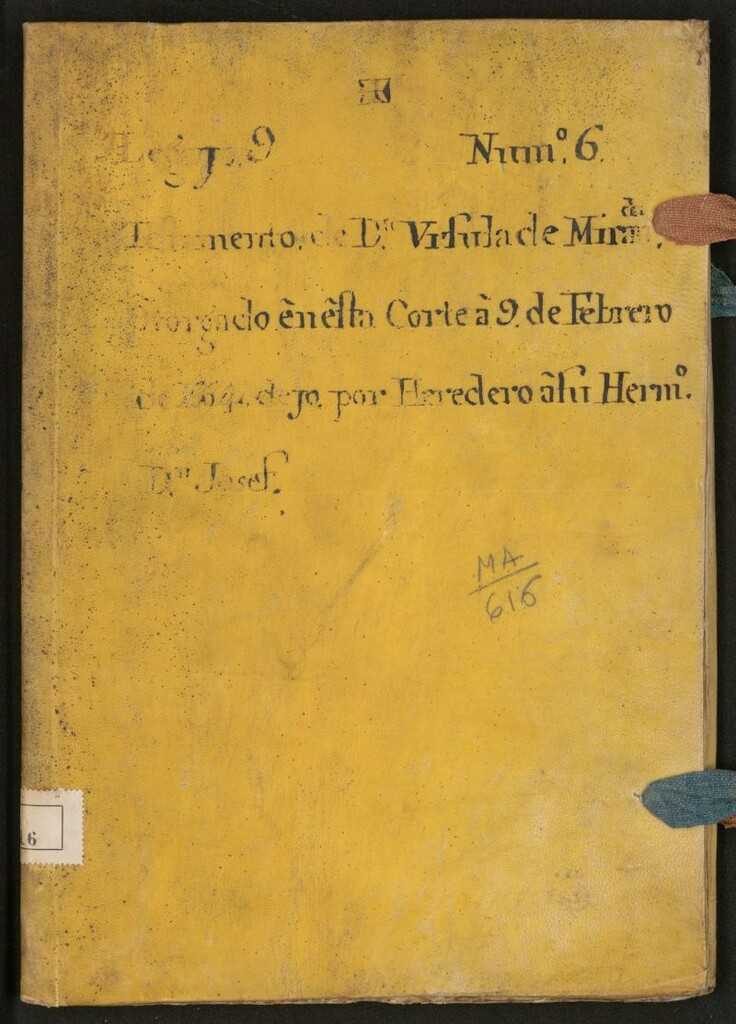 Legajo. 9 Num.º 6.
Testamento. de D.ª Vrsula de
otorgado ên êsta Corte â 9. de Febrero
de dejo. por Heredero â su Herm.º
D.ⁿ Josef.
MA
616
6